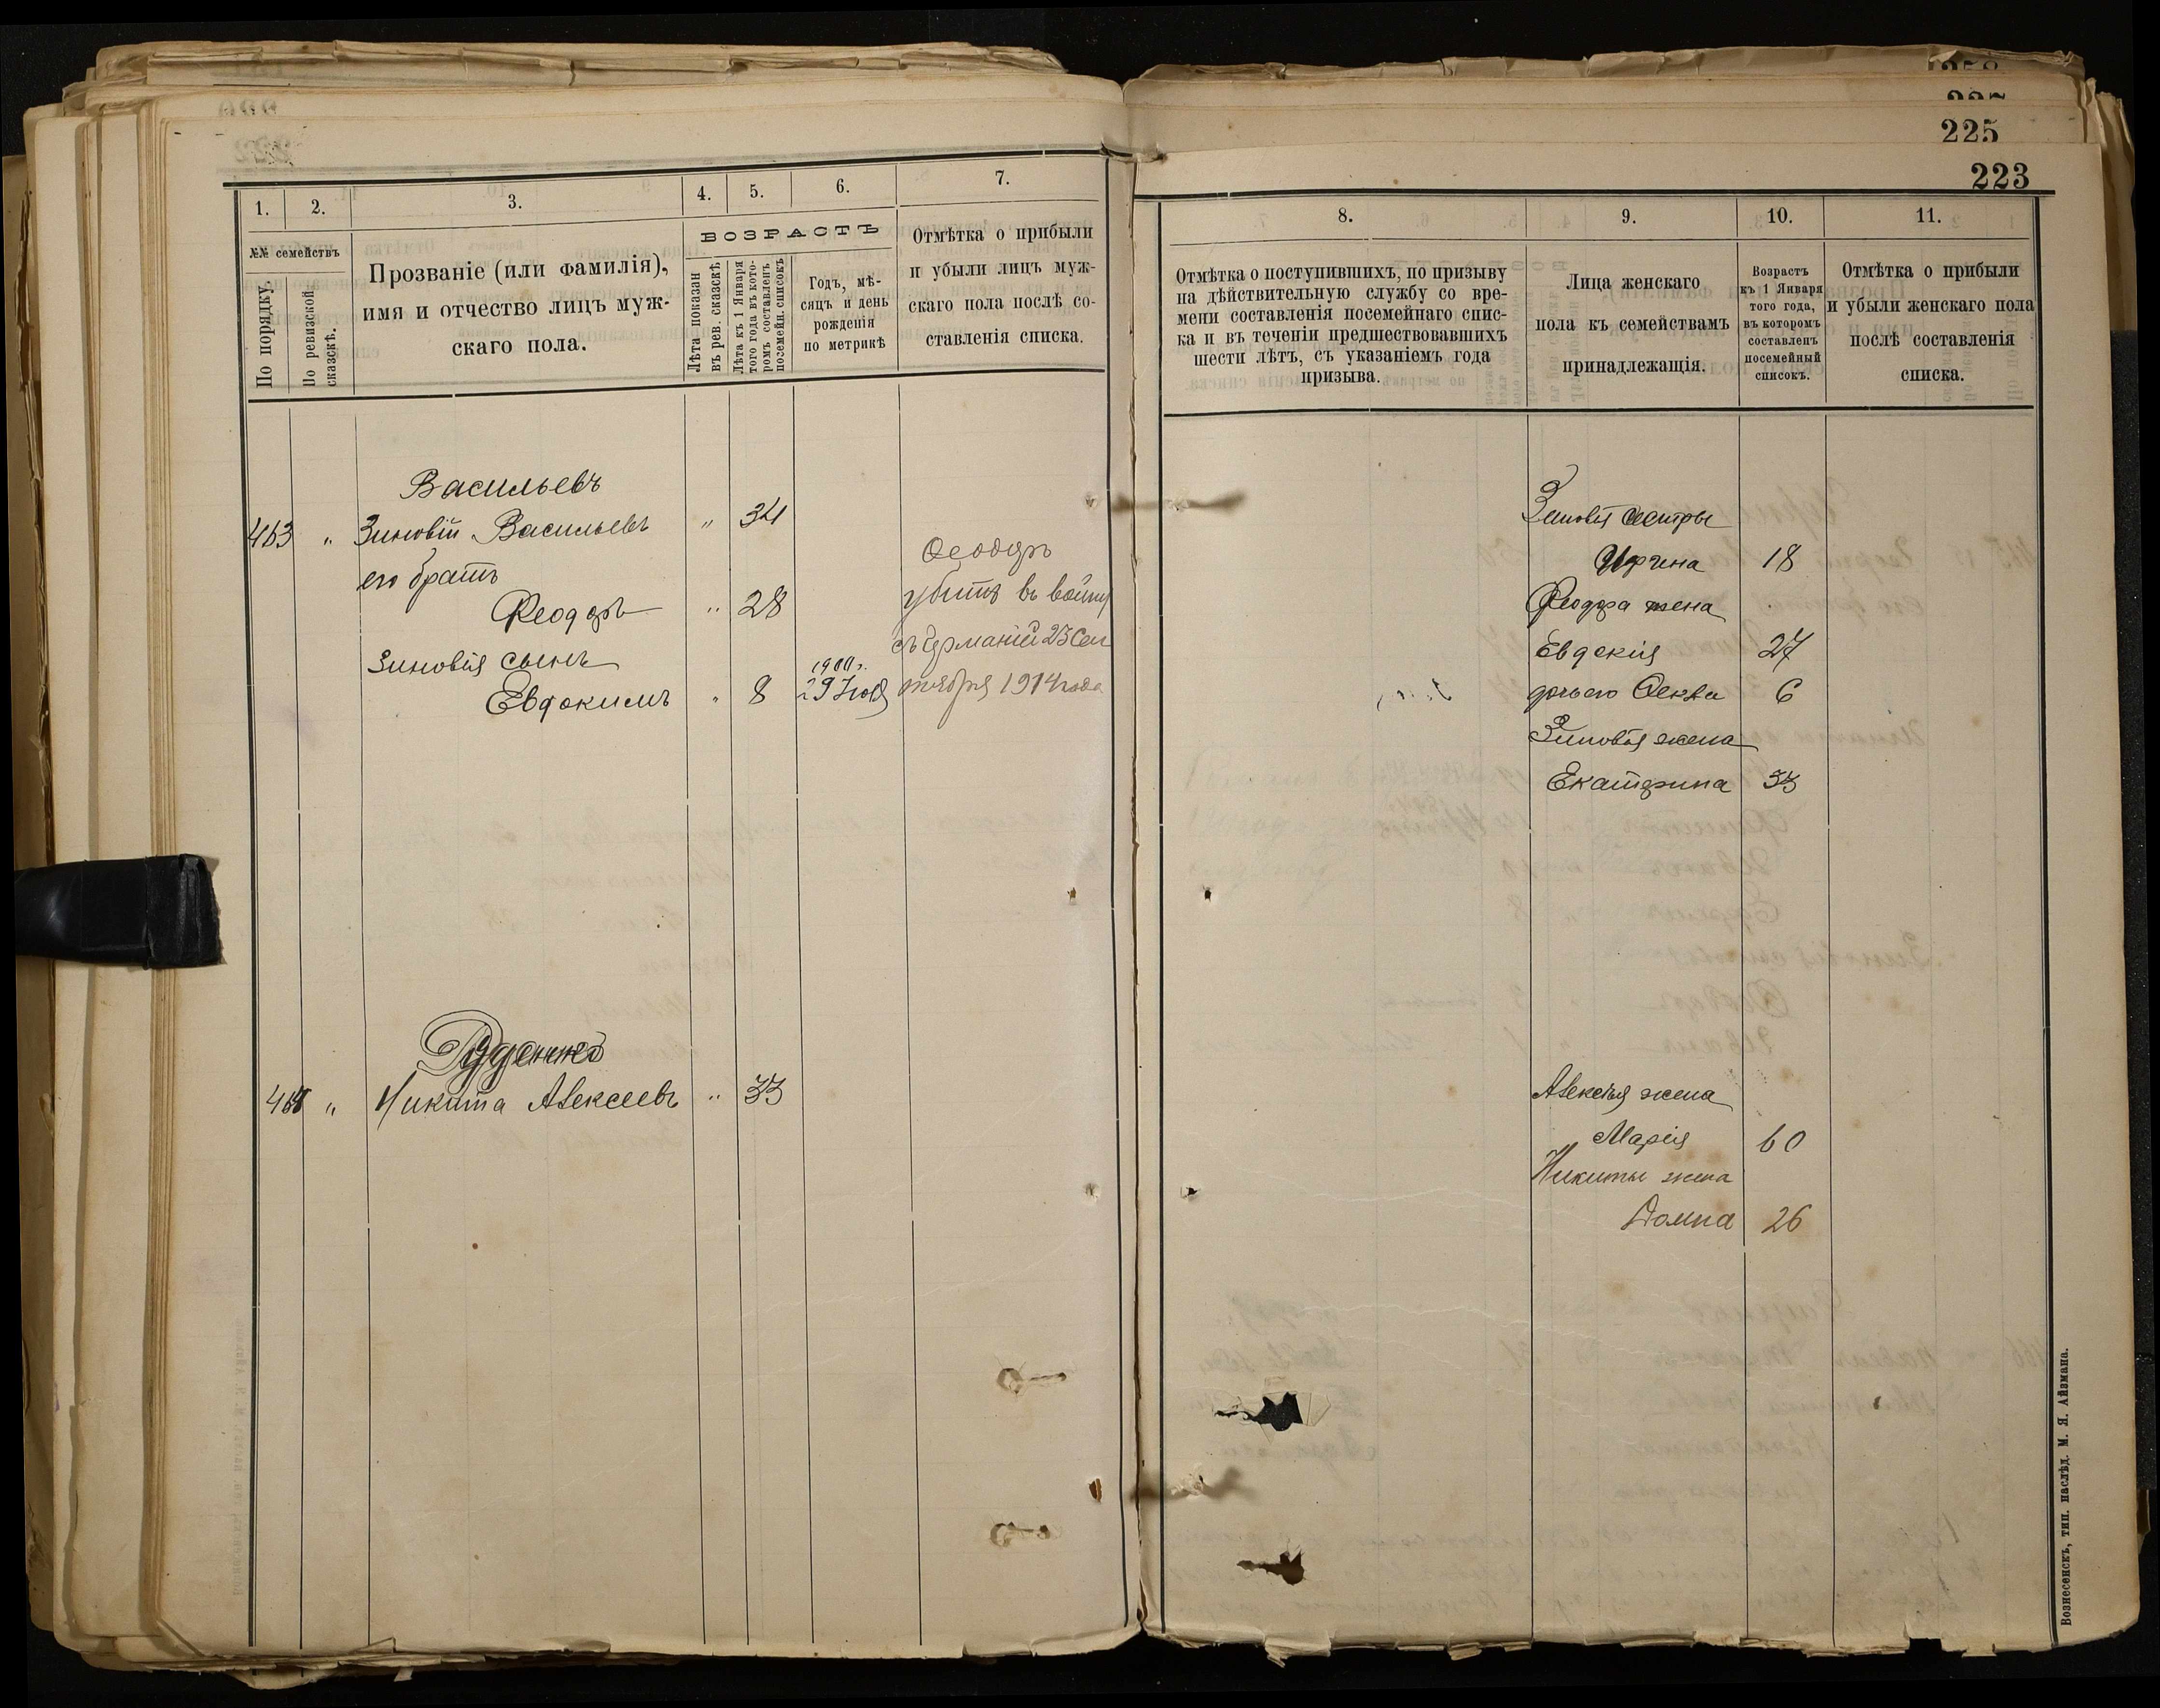 225
223
1.
2.
3.
4.
5.
6.
7.
№№ семействъ
По порядку.
По ревизской сказскѣ.
Прозваніе (или фамилія),
имя и отчество лицъ муж-
скаго пола.
ВОЗРАСТЪ
Лѣта показан
въ рев. сказскѣ
Лѣта къ 1 Января
того года въ кото-
ромъ составленъ
посемейн. списокъ
Годъ, мѣ-
сяцъ и день
рожденія
по метрикѣ
Отмѣтка о прибыли
и убыли лицъ муж-
скаго пола послѣ со-
ставленія списка.
Васильевъ
463 " Зиновій Васильевъ " 34
его братъ
Феодоръ " 28
Зиновія сынъ
Евдокимъ " 8
1900 г.
29 Іюля
Феодоръ
убитъ въ войну
съ Германіей 23 Сен
тября 1914 года
Руденко
464 " Никита Алексеевъ " 33
8.
9.
10.
11.
Отмѣтка о поступившихъ, по призыву
на дѣйствительную службу со вре-
мени составленія посемейнаго спис-
ка и въ теченіи предшествовавшихъ
шести лѣтъ, съ указаніемъ года
призыва.
Лица женскаго
пола къ семействамъ
принадлежащія.
Возрастъ
къ 1 Января
того года,
въ которомъ
составленъ
посемейный
списокъ.
Отмѣтка о прибыли
и убыли женскаго пола
послѣ составленія
списка.
Зиновія сестры
Ирина 18
Феодора жена
Евдокія 27
дочь его Фекла 6
Зиновія жена
Екатерина 33
Алексѣя жена
Марія 60
Никиты жена
Домна 26
Вознесенскъ, тип. наслѣд. М. Я. Айзмана.